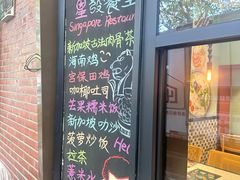 星發食堂
Singapore Restaur
新加坡古法肉骨茶
海南鸡
宫保田鸡
咖椰吐司
芒果糯米饭
新加坡叻沙
菠萝炒饭
拉茶
薏米水